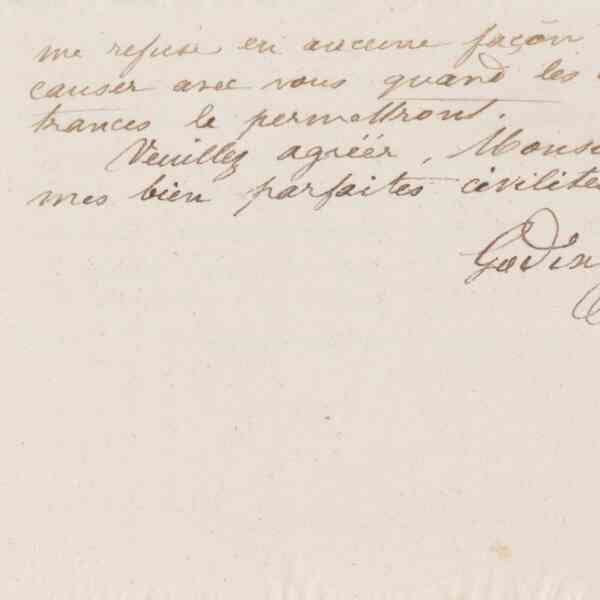 me refuse en aucune façon
causer avec vous quand les
trances le permettront.
Veuillez agréer, Monsi
mes bien parfaites civilités
Godin